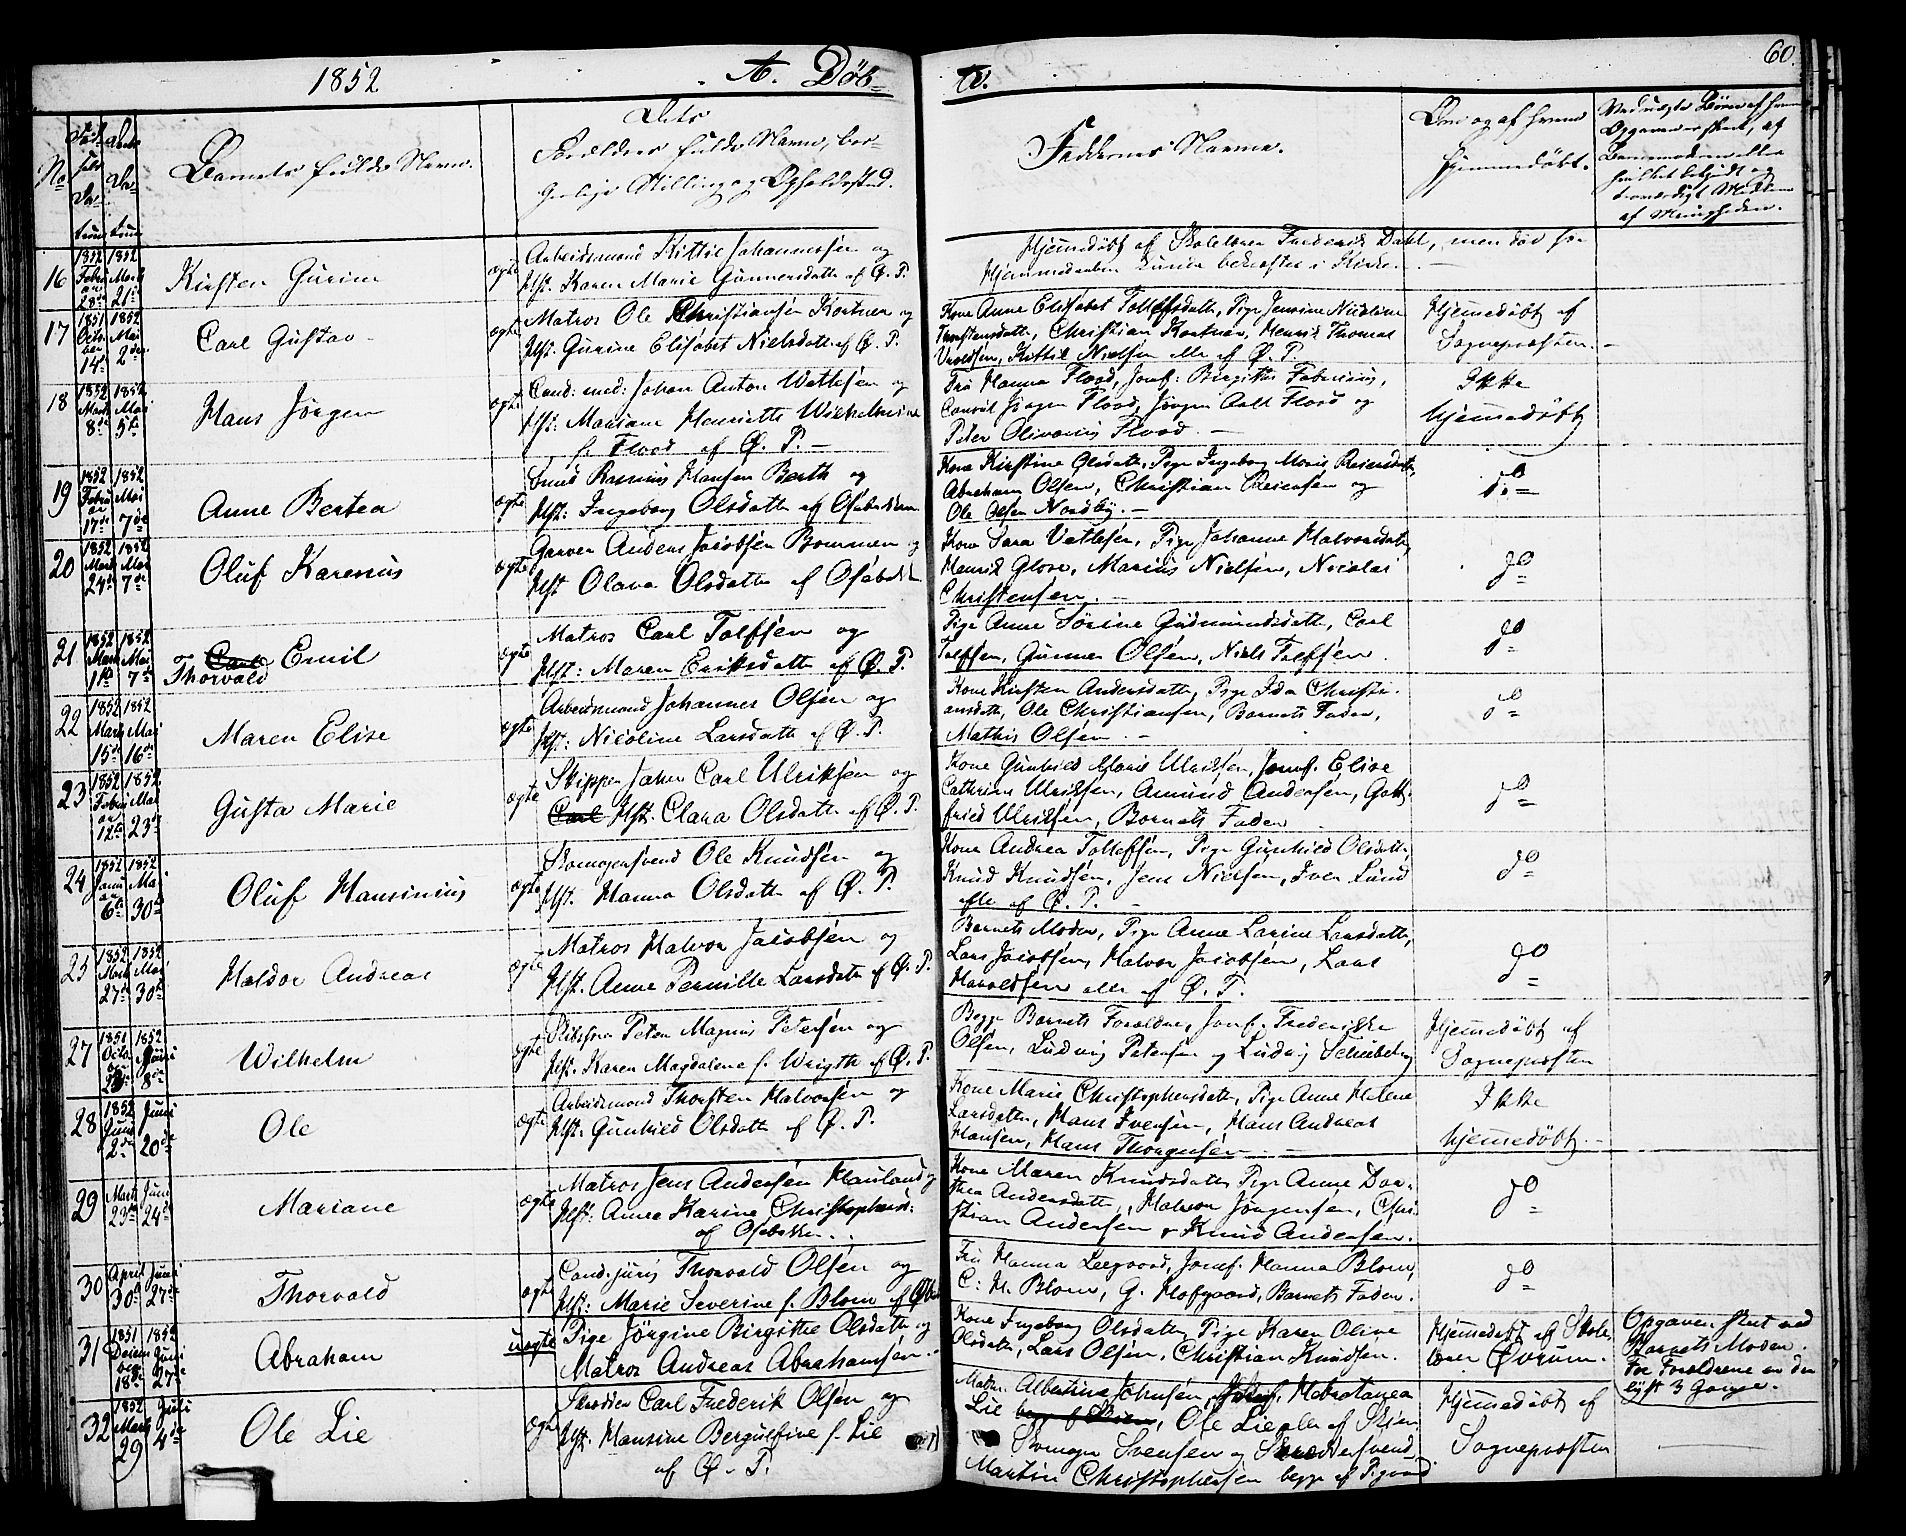 1852
A. Døb-
te.
60.
No
Barnets fulde Navn.
Dets
Forældres fulde Navn, bor-
gerlige Stilling og Opholdssted.
Faddernes Navne.
Om og af hvem
hjemmedøbt.
16
1852
Febru
ar
28de
1852
Marts
21de
Kirsten Gurine
ægte
Arbeidsmand Kittil Johannesen og
Hst. Karen Marie Gunnersdatter af Ø. P.
Hjemmedøbt af Skolelærer Frederik Dahl, men døde før
Hjemmedaaben kunde bekræftes i Kirke.
17
1851
Octo
ber
14de
1852
Mai
2den
Carl Gustav
ægte
Matros Ole Christiansen Kortner og
Hst. Gurine Elisabet Nielsdatter af Ø. P.
Kone Anne Elisabet Tollefsdatter, Pige Jensine Nicoline
Thorstensdatter, Christian Kortner, Henrik Thomas
Kittil Nielsen alle af Ø. P.
Hjemmedøbt af
Sognepresten.
18
1852
Marts
8de
1852
Mai
5te
Hans Jørgen
ægte
Cand: med: Johan Anton Wetlesen og
Hst: Mariane Henriette Wilhelmine
f. Flood af Ø. P.
Fru Hanna Flood, Jomf: Birgitte Fabricius,
Consul Jørgen Flood, Jørgen Aall Flood og
Peter Olivarius Flood.
Ikke
hjemmedøbt
19
1852
Febru
ar
17de
1852
Mai
7de
Anne Bertea
ægte
Smed Rasmus Hansen Berth og
Hst: Ingeborg Olsdatter af Osebakken
Kone Kirstine Olsdatter, Pige Ingeborg Marie Reiersdatter,
Abraham Olsen, Christian Reiersen og
Ole Olsen Nordby.
do
20
1852
Marts
24de
1852
Mai
7de
Oluf Karenius
ægte
Garver Anders Jacobsen Bommen og
Hst. Olava Olsdatter af Osebakken
Kone Sara Vetlesen, Pige Johanne Halvorsdatter,
Henrik Glose, Marius Nielsen, Nicolai
Christensen.
do
21
1852
Marts
1852
Mai
7de
Carl Emil
Thorvald
ægte
Matros Carl Tolfsen og
Hst: Maren Eriksdatter af Ø. P.
Pige Anne Sørine Gudmundsdatter, Carl
Tolfsen, Gunner Olsen, Niels Tolfsen.
do
22
1852
Marts
15de
1852
Mai
16de
Maren Elise
ægte
Arbeidsmand Johannes Olsen og
Hst: Nicoline Larsdatter af Ø. P.
Kone Kirsten Andersdatter, Pige Ida Christi-
ansdatter, Ole Christiansen, Barnets Fader,
Mathis Olsen.
do
23
1852
Febru
ar
12te
1852
Mai
23de
Gusta Marie
ægte
Skipper Johan Carl Ulriksen og
Carl Hst. Clara Olsdatter af Ø. P.
Kone Gunhild Marie Ulriksen, Jomf. Elise
Cathrine Ulriksen, Amund Andersen, Gott-
fried Ulriksen, Barnets Fader
do
24
1852
Janu
ar
6te
1852
Mai
30te
Oluf Hansinius
ægte
Skomagersvend Ole Knudsen og
Hst. Hanna Olsdatter af Ø. P.
Kone Andrea Tollefsen, Pige Gunhild Olsdatter
Knud Knudsen, Jens Nielsen, Iver Lund
alle af Ø. P.
do
25
1852
Marts
27de
1852
Mai
30te
Haldor Andreas
ægte
Matros Halvor Jacobsen og
Hst. Anne Pernille Larsdatter af Ø. P.
Barnets Moder, Pige Anne Larine Larsdatter,
Lars Jacobsen, Halvor Jacobsen, Lars
Haraldsen alle af Ø. P.
do
27
1851
Octo
1852
Juni
8de
Wilhelm
ægte
Peter Magnus Petersen og
Hst. Karen Magdalene f. Wrigth af Ø. P.
Begge Barnets Forældre, Jomf. Frederikke
Olsen, Ludvig Petersen og Ludvig Schuberg
Hjemmedøbt af
Sognepresten
28
1852
Juni
2den
Juni
20de
Ole
ægte
Arbeidsmand Thorsten Halvorsen og
Hst: Gunhild Olsdatter af Ø. P.
Kone Marie Christophersdatter, Pige Anne Helene
Larsdatter, Hans Evensen, Hans Andreas
Hansen, Hans Thorgersen
Ikke
hjemmedøbt.
29
Marts
23de
Juni
24de
Mariane
ægte
Matros Jens Andersen Hauland og
Hst: Anne Karine Christophersd:
af Osebakken.
Kone Maren Knudsdatter, Pige Anne Dor-
thea Andersdatter, Halvor Jørgensen, Chri-
stian Andersen & Knud Andersen.
do
30
April
30te
Juni
27de
Thorvald
ægte
Cand: juris Thorvald Olsen og
Hst: Marie Severine f. Blom af Østre
Fru Hanna Leegaard, Jomf. Hanna Blom,
C: H. Blom, G. Hofgaard, Barnets Fader.
do
31
1851
Decem
ber
18de
1852
Juni
27de
Abraham
uægte
Pige Jørgine Birgitte Olsdatter og
Matros Andreas Abrahamsen.
Kone Ingeborg Olsdatter, Pige Karen Oline
Olsdatter, Lars Olsen, Christian Knudsen.
Hjemmedøbt af Skole-
lærer Øvrum.
Opgaven skeet ved
Barnets Moder.
For Forældrene er der
lyst 3 Gange.
32
1852
Marts
29
Juli
4de
Ole Lie
ægte
Skrædder Carl Frederik Olsen og
Hst. Hansine Bergulfine f. Lie
af Ø. P.
Albertine Johnsen, Jomf.
Lie Ole Lie alle af Skien
Skomager Svensen og Skræddersvend
Martin Christophersen begge af
Hjemmedøbt af
Sognepresten